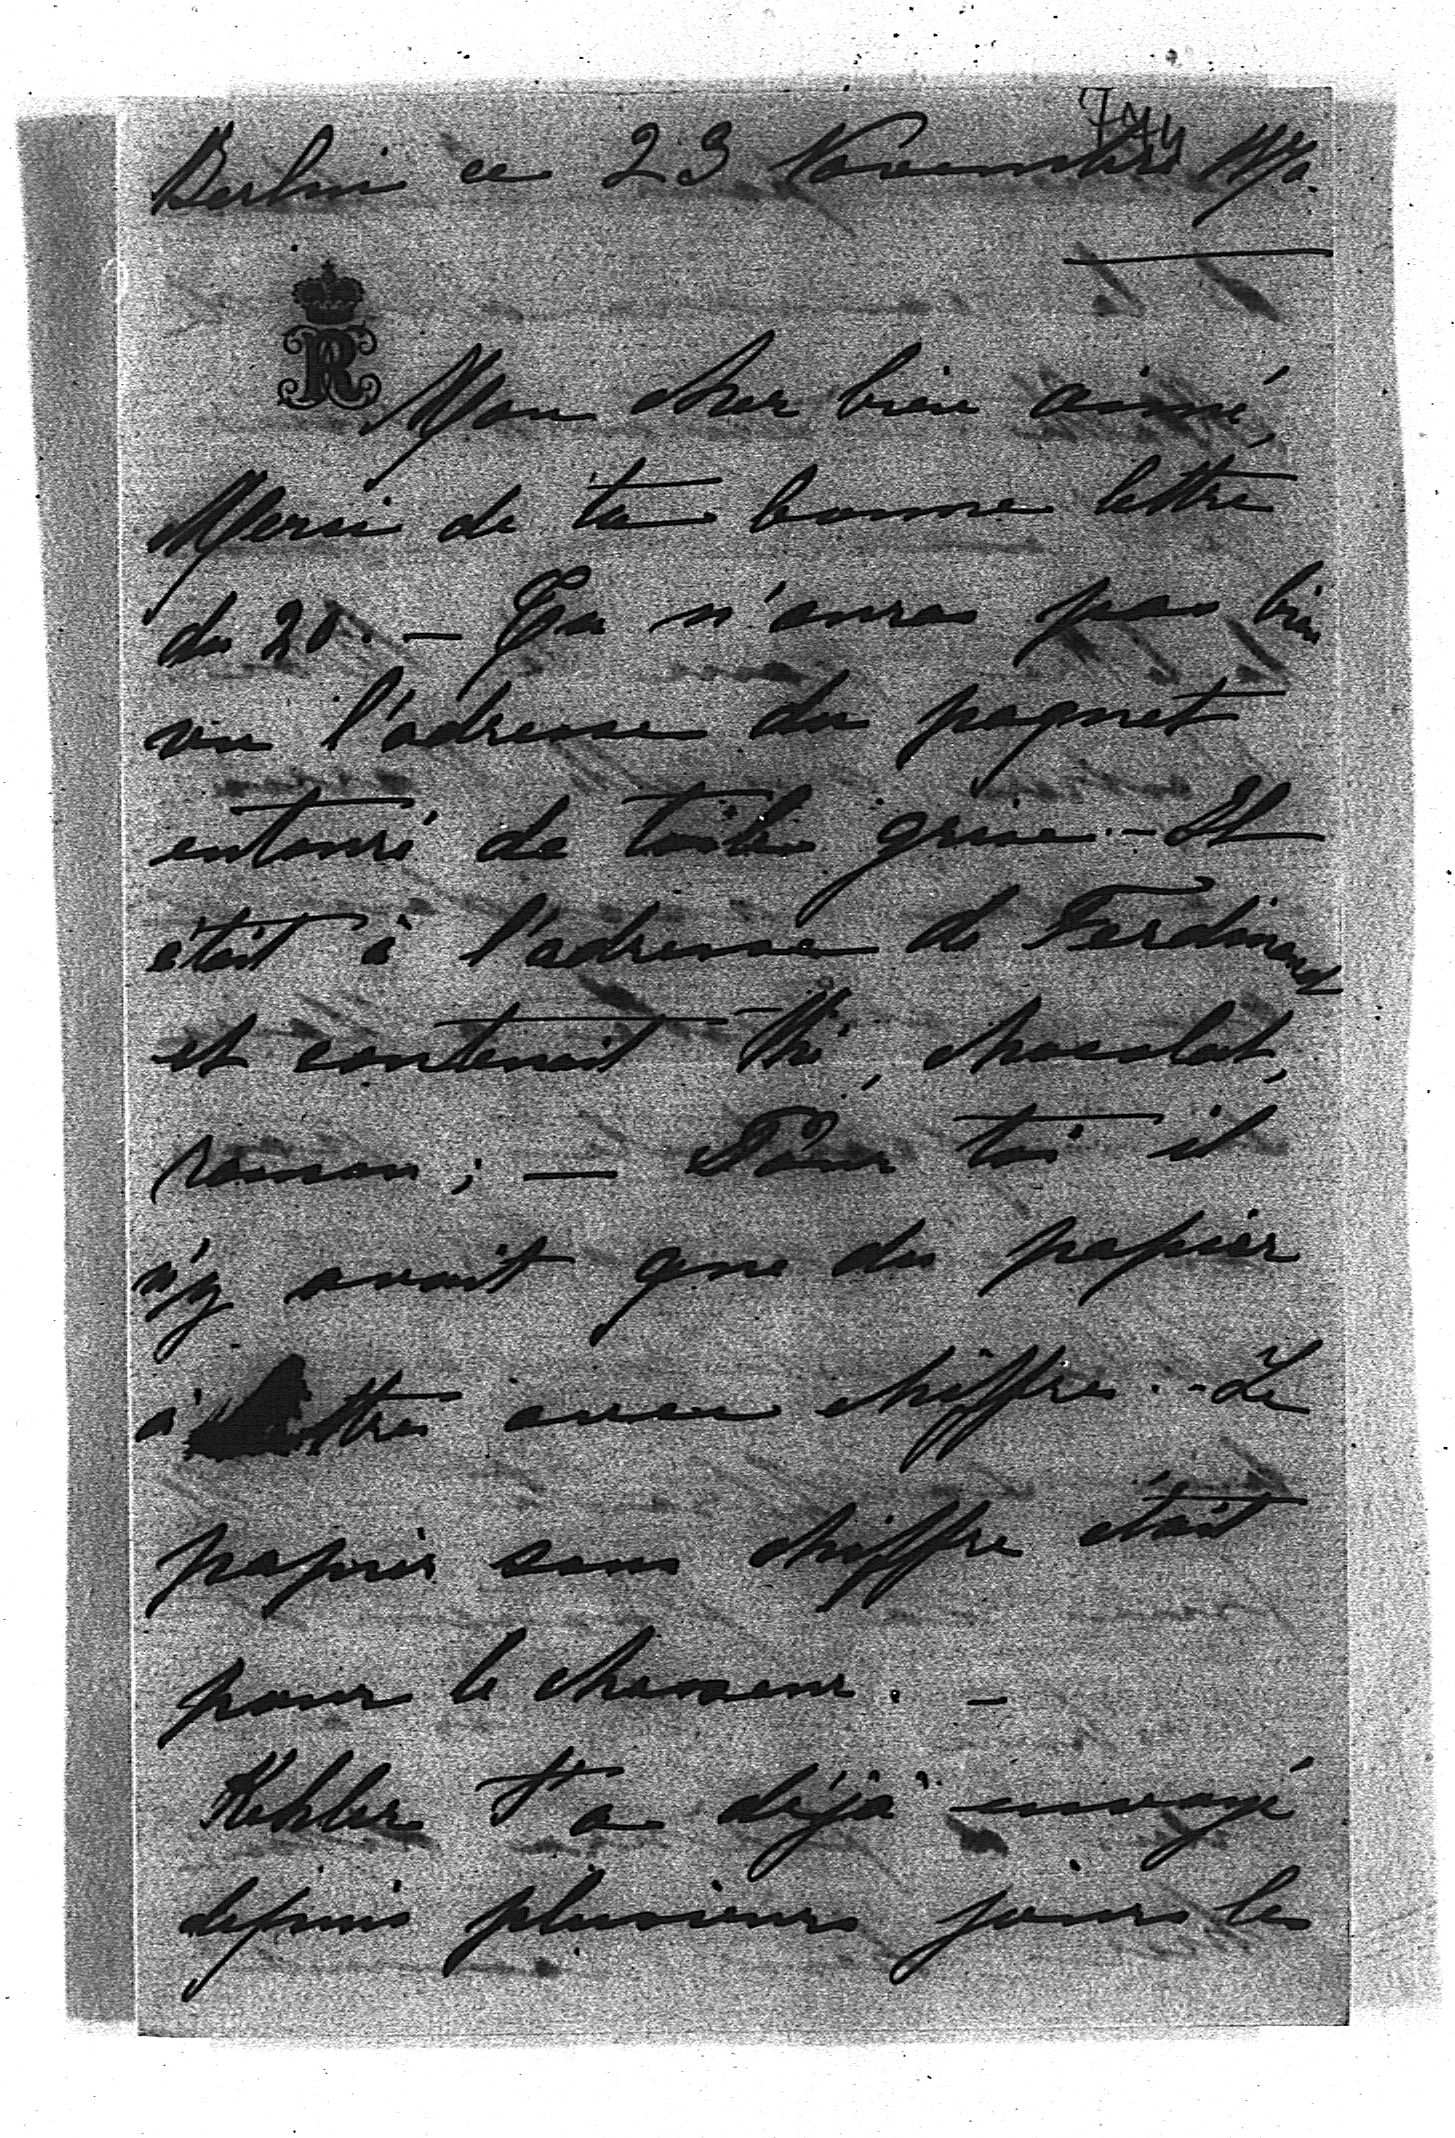 Berlin ce 23 Novembre
R
Mon cher bien aimé,
Merci de ta bonne lettre
du 20. — Tu n'auras pas bien
vu l'adresse du paquet
entouré de toile grise. — Il
était à l'adresse de Ferdinand
et contenait thé, chocolat,
roman ; — Pour toi il
n'y avait que du papier
à lettres avec chiffre. — Le
papier sans chiffre était
pour le chasseur. —
Kohler t'a déjà envoyé
depuis plusieurs jours les